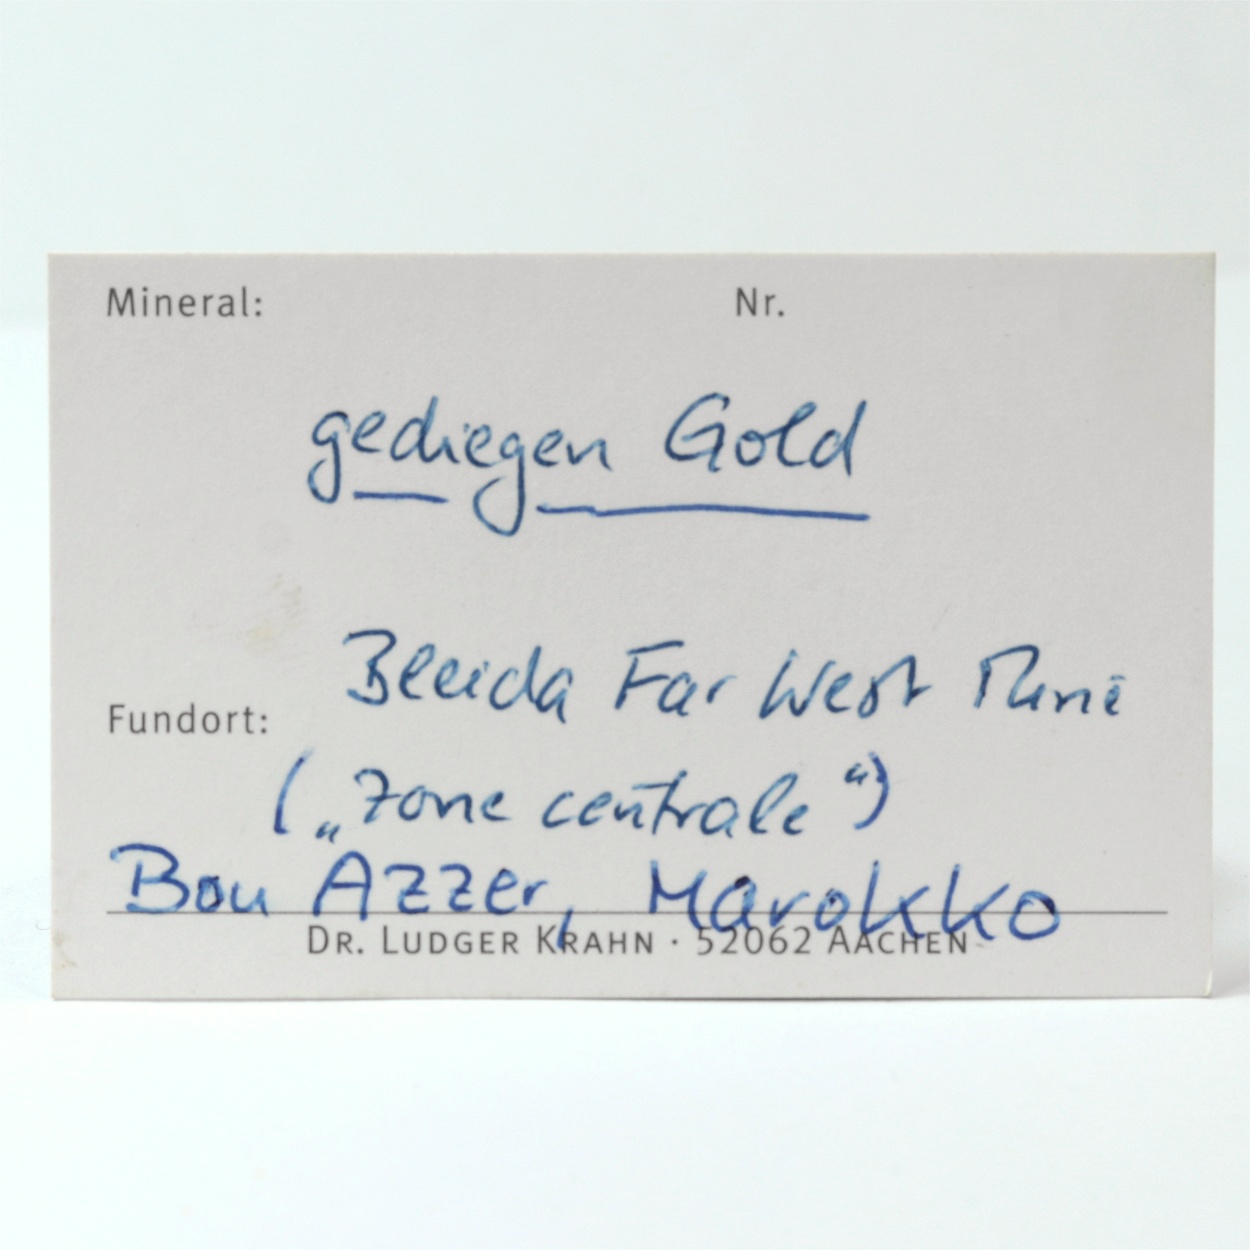 Mineral: Nr.
gediegen Gold
Bleida Far West Mine
Fundort:
(„Zone centrale“)
Bou Azzer, Marokko
DR. LUDGER KRAHN · 52062 AACHEN